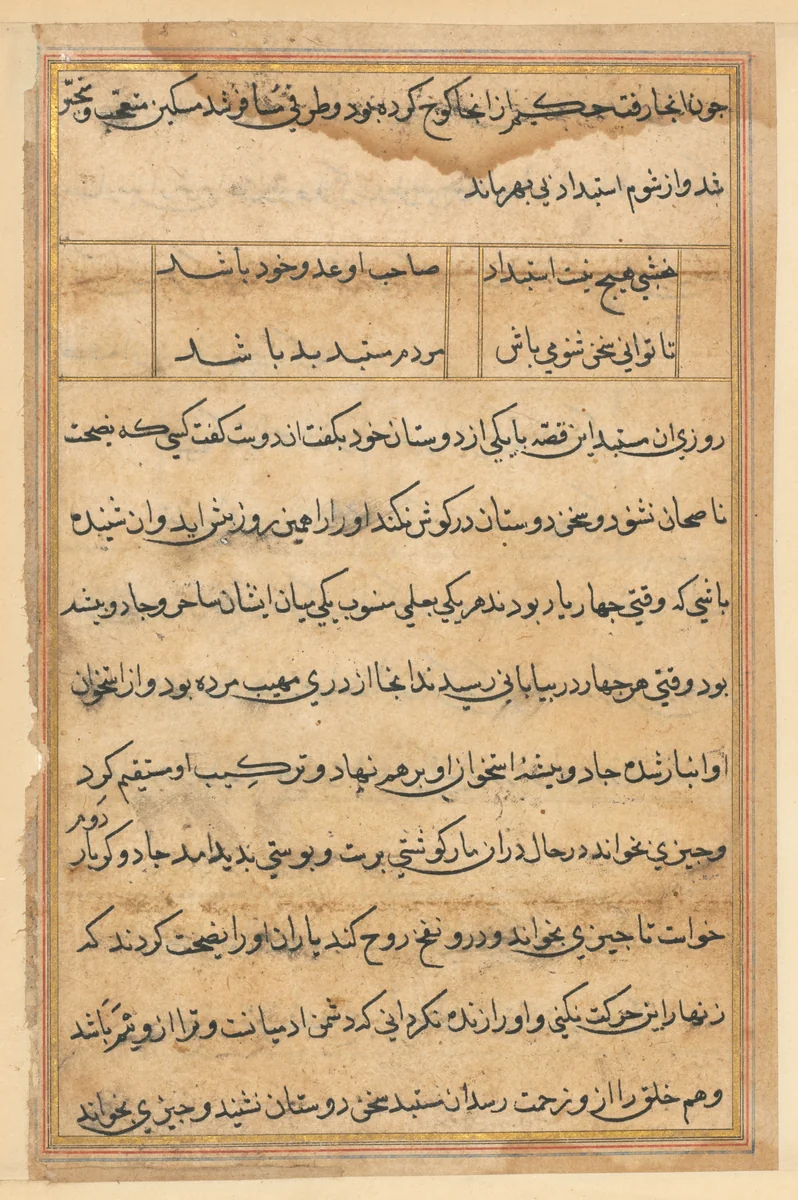 جون انجا رفت حكيم از انجا كوج كرده بود و طرفي مسافر شد مسكين متعجب و متحيّر
شد و از شوم استبداد بي بهر ماند
نخشبي هيج نيست استبداد صاحب او عدو خود باشد
تا تواني سخن شنو مي باش مردم مستبد بد باشد
روزي ان مستبد اين قصّه با يكي از دوستان خود بكفت ان دوست كفت كسي كه نصحت
ناصحان نشنود و سخن دوستان در كوش نكند او را همين روز بيش ايد و ان شنيده
باشي كه وقتي جهار يار بودند هر يكي بعلمي منسوب يكي ميان ايشان ساحر و جادو بيشه
بود وقتي هر جهار در بياباني رسيدند انجا ازدري مهيب مرده بود و از استخوان
او انبار شده جادو بيشه استخوان او برهم نهاد و تركيب او مستقيم كرد
و جيزي بخواند در حال دران مار كوشتي برست و بوستي بديد امد جادوكر بار
دوم
خواست تا جيزي بخواند و درو نفخ روح كند ياران او را نصحت كردند كه
زنهار اين حركت نكني و او را زنده نكرداني كه دشمن ادميانست و ترا ازو بيم باشد
و هم خلق را ازو زحمت رسد ان مستبد سخن دوستان نشنيد و جيزي بخواند